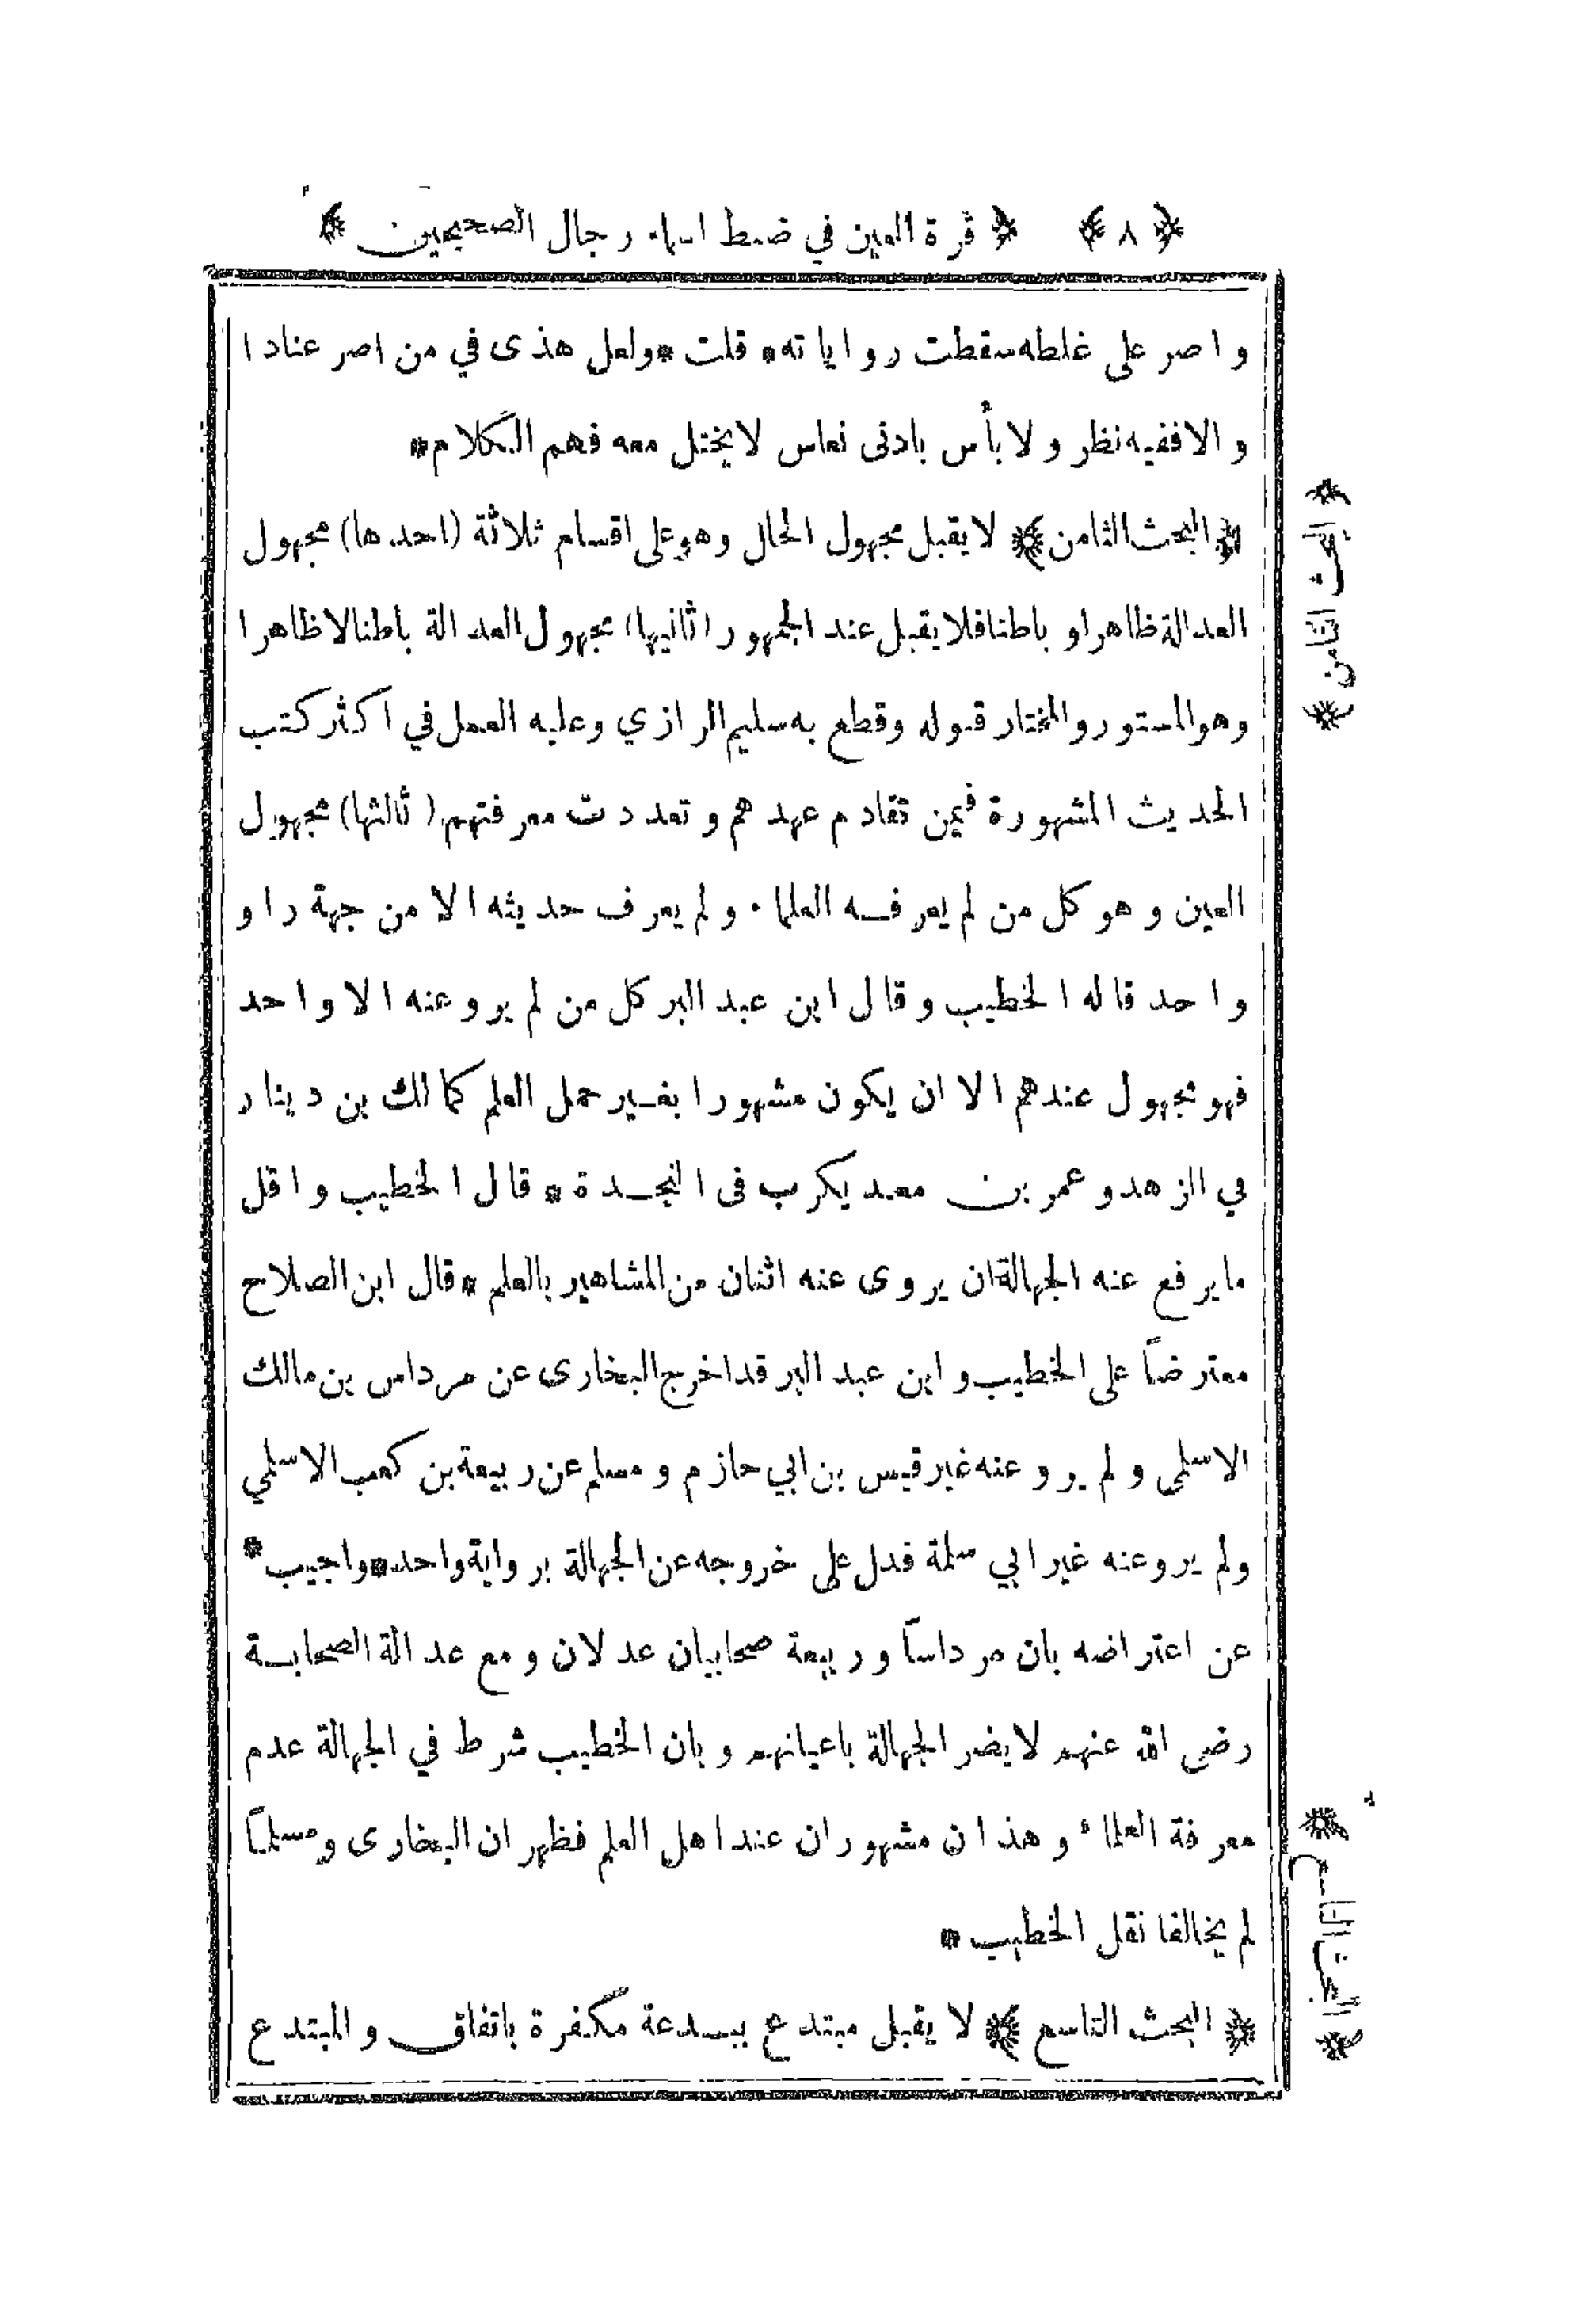 ﴿ ٨ ﴾ ﴿ قرة العين في ضبط اسماء رجال الصحيحين ﴾
واصر على غلطه سقطت رواياته* قلت *ولعل هذى في من اصر عنادا
والا ففيه نظر ولا بأس بادنى نعاس لا يختل معه فهم الكلام*
﴿ البحث الثامن ﴾ لا يقبل مجهول الحال وهو على اقسام ثلاثة (احدها) مجهول
العدالة ظاهرا و باطنا فلا يقبل عند الجمهور (ثانيها) مجهول العدالة باطنا لا ظاهرا
وهو المستور والمختار قبوله وقطع به سليم الرازي وعليه العمل في اكثر كتب
الحديث المشهورة فيمن تقادم عهدهم و تعددت معرفتهم (ثالثها) مجهول
العين و هو كل من لم يعرفه العلماء و لم يعرف حديثه الا من جهة راو
واحد قاله الخطيب و قال ابن عبد البر كل من لم يرو عنه الا واحد
فهو مجهول عندهم الا ان يكون مشهورا بغير حمل العلم كمالك بن دينار
في الزهد و عمر بن معد يكرب فى النجدة * قال الخطيب و اقل
ما يرفع عنه الجهالة ان يروى عنه اثنان من المشاهير بالعلم * قال ابن الصلاح
معترضاً على الخطيب و ابن عبد البر قد اخرج البخارى عن مرداس بن مالك
الاسلمى و لم يرو عنه غير قيس بن ابي حازم و مسلم عن ربيعة بن كعب الاسلمي
ولم يرو عنه غير ابي سلمة فدل على خروجه عن الجهالة برواية واحد * واجيب *
عن اعتراضه بان مرداساً و ربيعة صحابيان عدلان و مع عدالة الصحابة
رضى الله عنهم لا يضر الجهالة باعيانهم و بان الخطيب شرط في الجهالة عدم
معرفة العلماء و هذان مشهوران عند اهل العلم فظهر ان البخارى و مسلماً
لم يخالفا نقل الخطيب *
﴿ البحث التاسع ﴾ لا يقبل مبتدع ببدعة مكفرة باتفاق و المبتدع
﴿ البحث الثامن ﴾
﴿ البحث التاسع ﴾